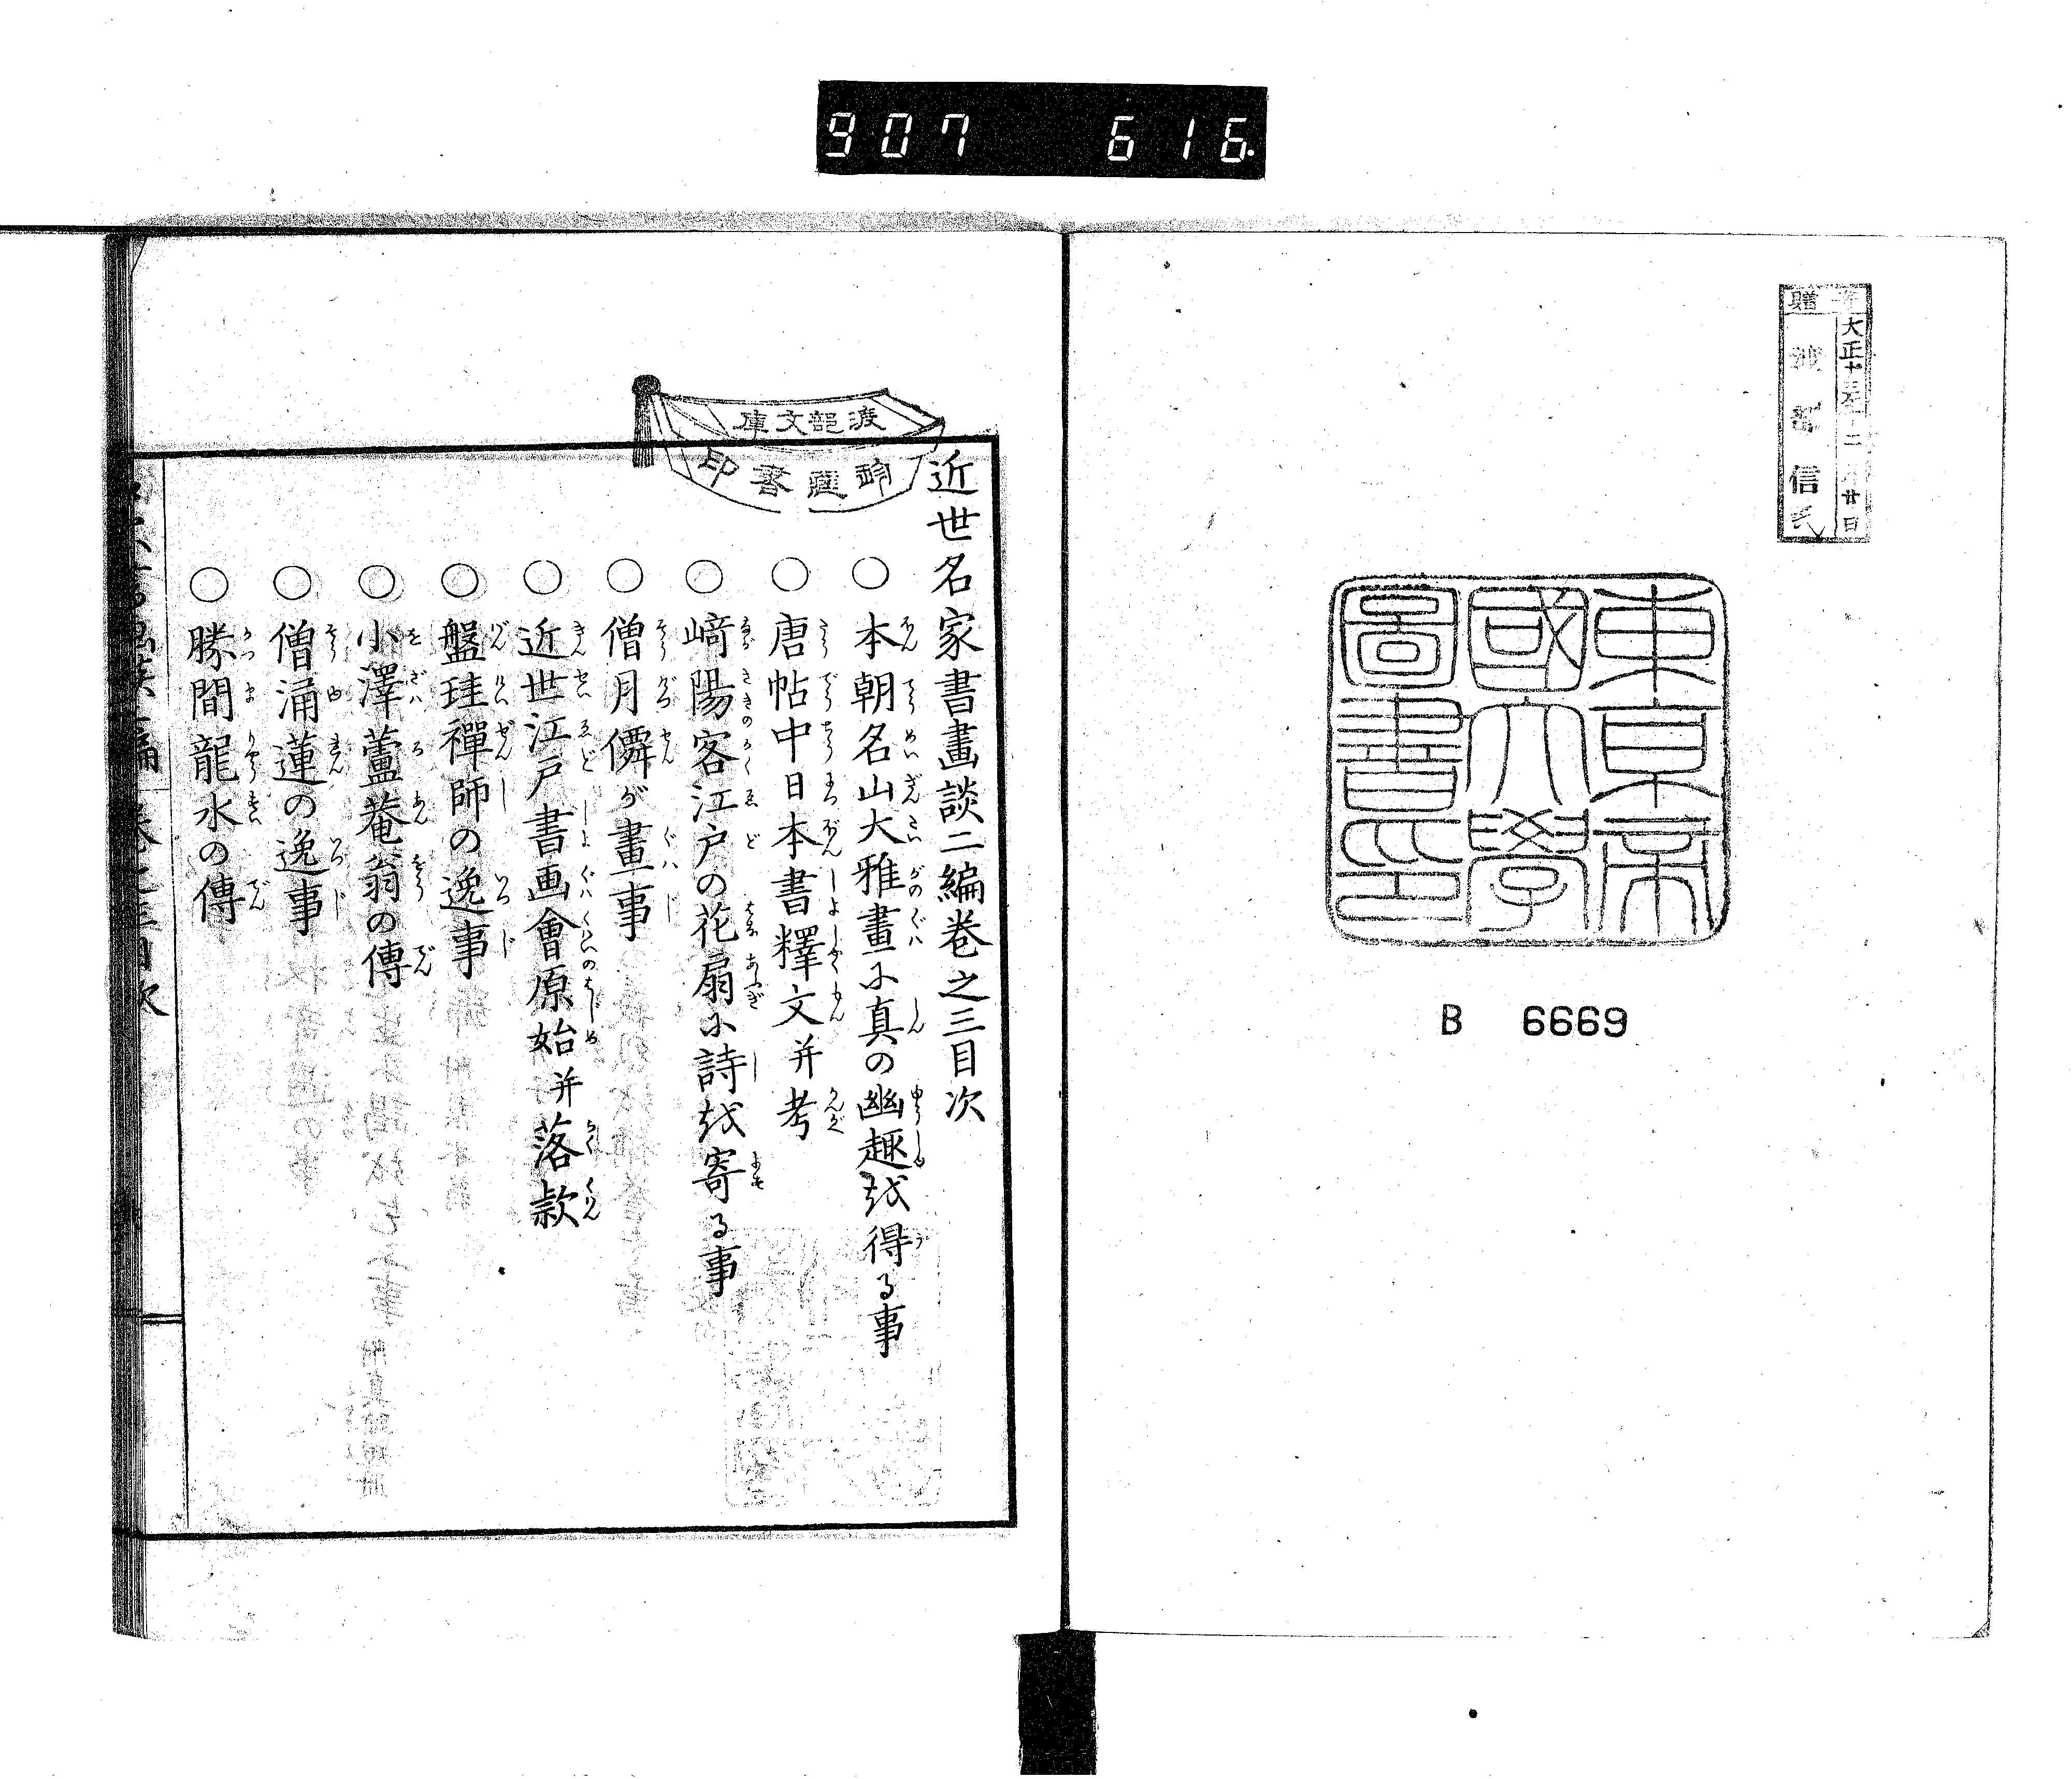 907 616.
大正十
廿日
贈
信氏
東京帝
國大學
圖書印
B 6669
渡部文庫
珍藏書印
近世名家書畫談二編巻之三目次
○本朝名山大雅畫に真の幽趣を得る事
○唐帖中日本書釋文并考
○﨑陽客江戸の花扇に詩を寄る事
○僧月僊が畫事
○近世江戸書画會原始并落款
○盤珪禪師の逸事
○小澤蘆菴翁の傳
○僧涌蓮の逸事
○勝間龍水の傳